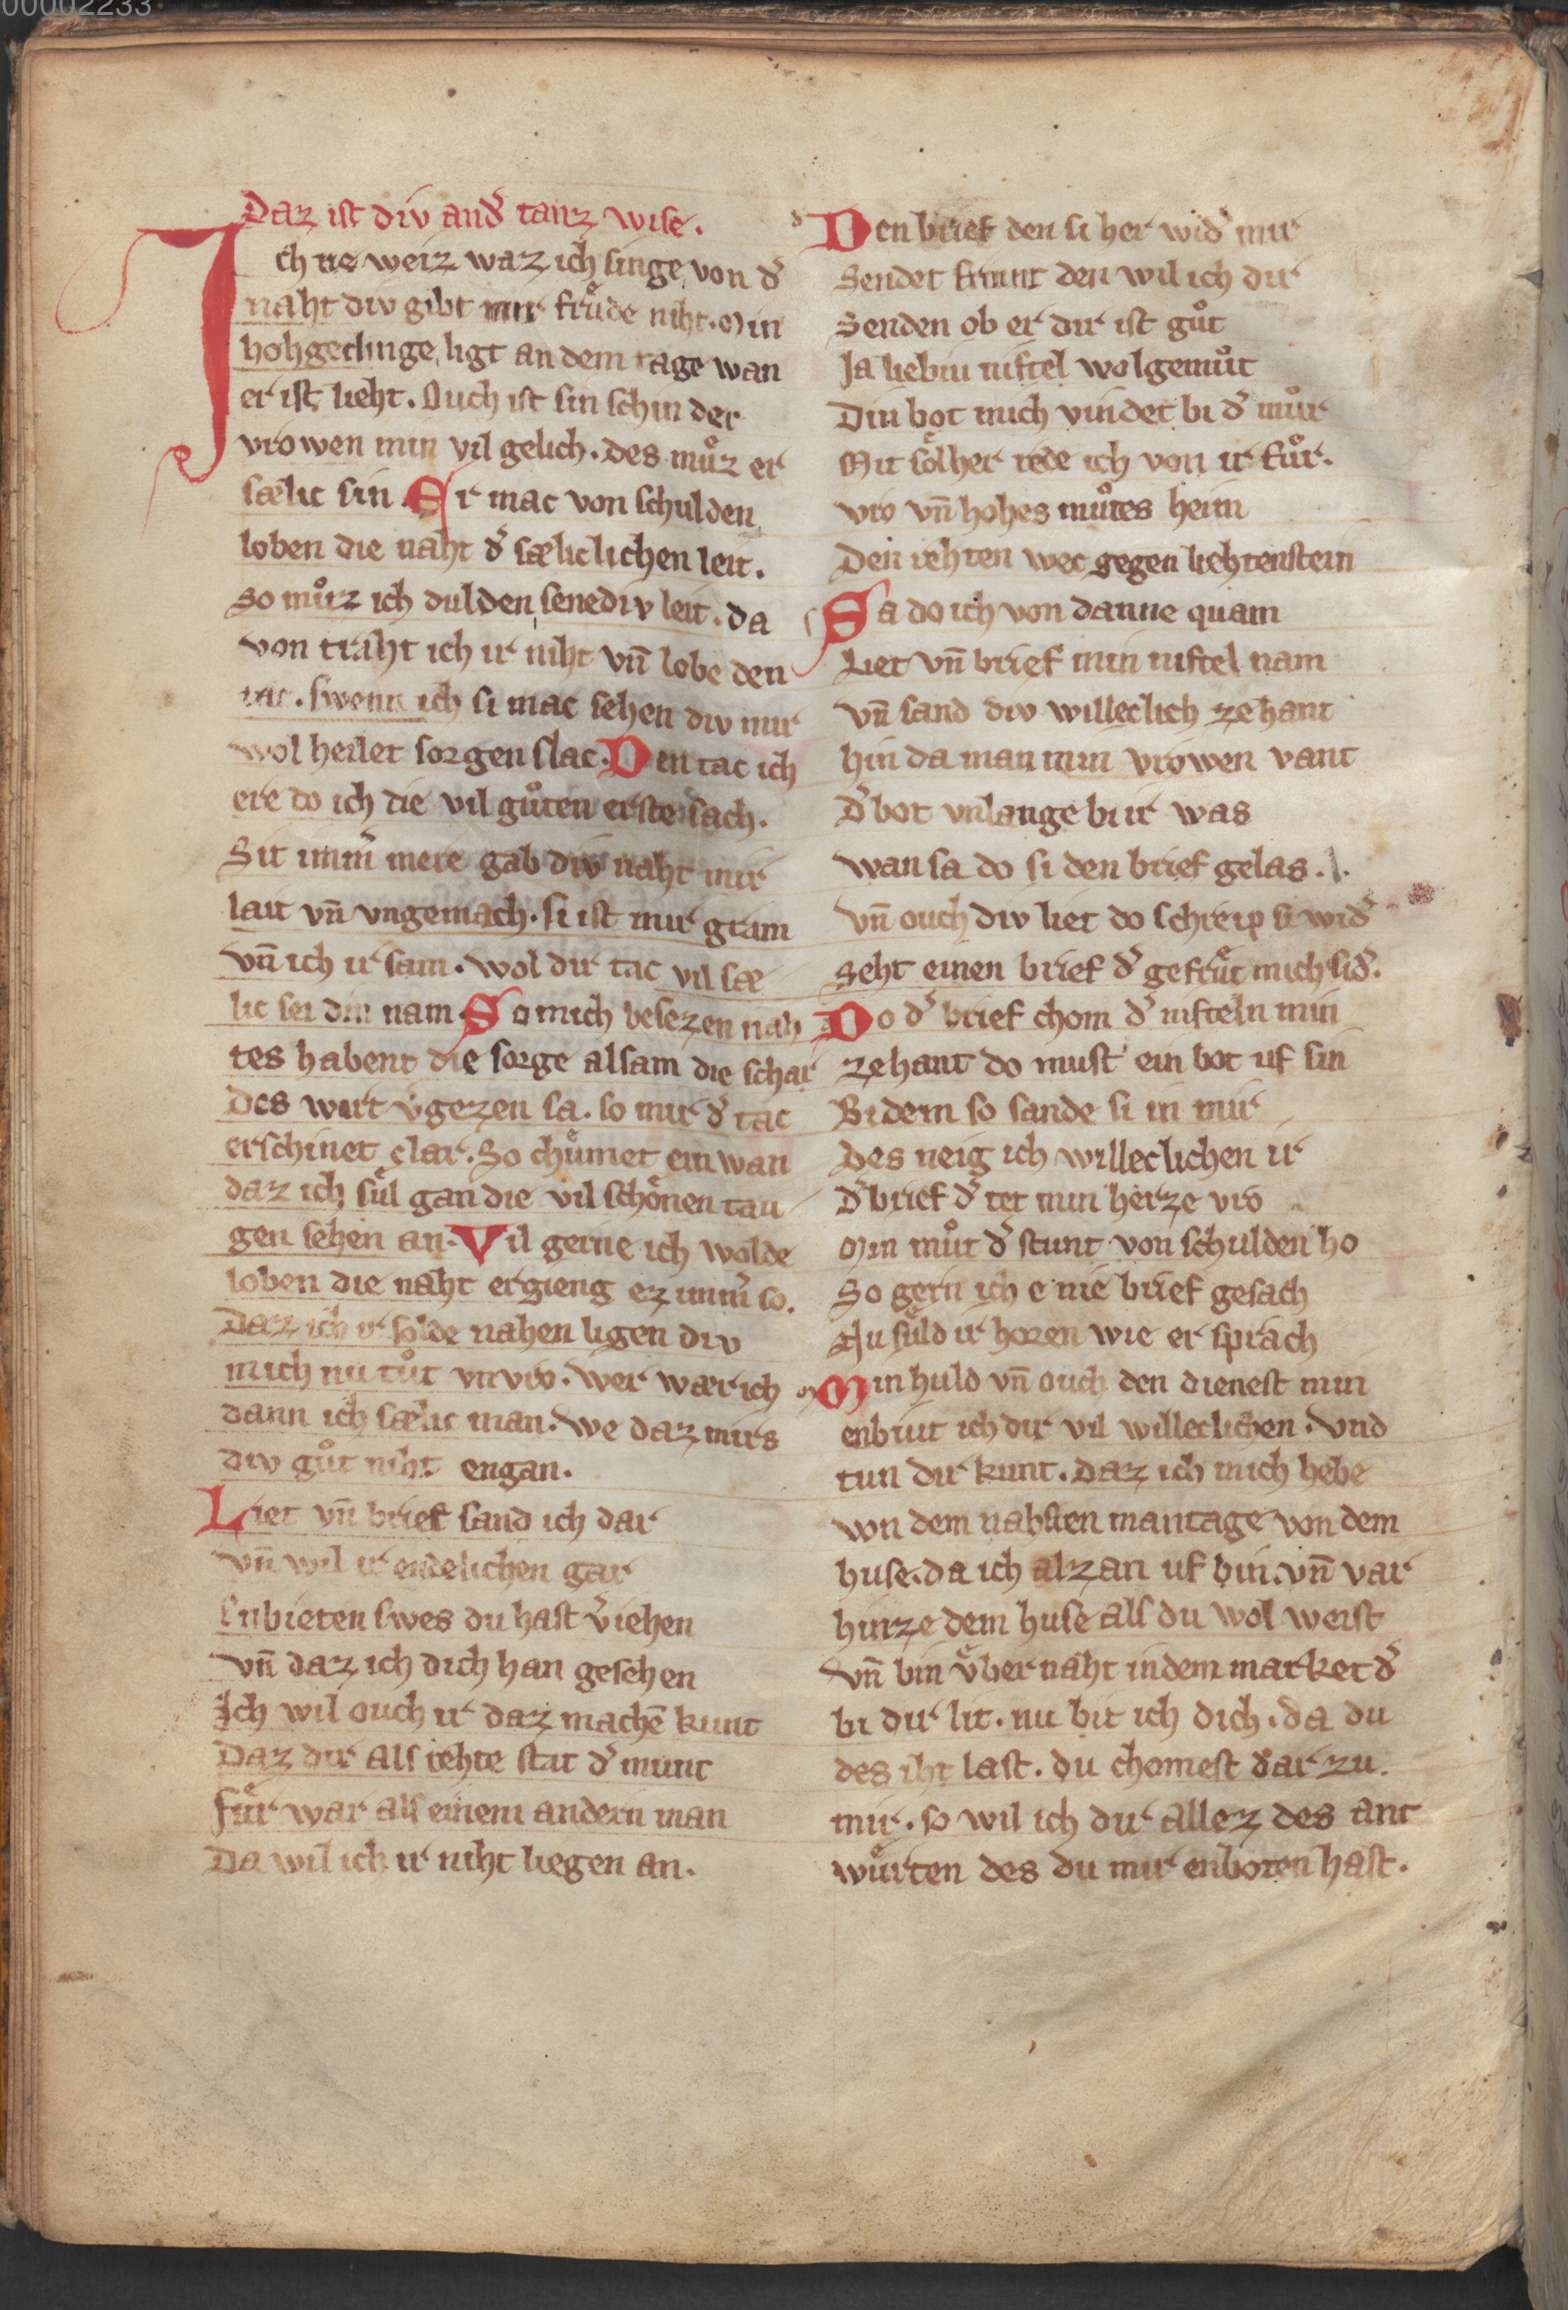 00002233
Daz ist div and͛ tanz wise.
Ich ne weiz waz ich singe von d͛
naht div gibt mir frͤude niht. Min
hohgedinge ligt an dem tage wan
er ist lieht. Ouch ist sin schin der
vrowen min vil gelich. des mͦuz er
sælic sin. Er mac von schulden
loben die naht d͛ sæliclichen leit.
So mͦuz ich dulden senediv leit. da
von traht ich ir niht vn̄ lobe den
tac. swenn ich si mac sehen div mir
wol heilet sorgen slac. Den tac ich
ere do ich die vil gͦuten erste sach.
Sit imm͛ mere gab div naht mir
lait vn̄ vngemach. si ist mir gram
vn̄ ich ir sam. wol dir tac vil sæ
lic sei din nam So mich besezen nah
tes habent die sorge alsam die schar
des wirt v͛gezen sa. so mir d͛ tac
erschinet clar. So chͤumet ein wan
daz ich sͤul gan die vil schͤonen tau
gen sehen an. Vil gerne ich wolde
loben die naht ergieng ez imm͛ so.
Daz ich ir solde nahen ligen div
mich nu tͦut vnvro. wer wær ich
dann ich sælic man. we daz mirs
div gͦut niht engan.
Liet vn̄ brief sand ich dar
vn̄ wil ir endelichen gar
Enbieten swes du hast v͛iehen
vn̄ daz ich dich han gesehen
Ich wil ouch ir daz machē kunt
Daz dir als rehte stat d͛ munt
fͤur war als einem andern man
Da wil ich ir niht liegen an.
Den brief den si her wid͛ mir
Sendet frivnt den wil ich dir
Senden ob er dir ist gͦut
Ja liebiu niftel wolgemͦut
Din bot mich vindet bi d͛ mͦur
Mit sͤolher rede ich von ir fͦur.
vro vn̄ hohes mͦutes heim
Den rehten wec gegen liehtenstein
Sa do ich von danne quam
Liet vn̄ brief min niftel nam
vn̄ sand div willeclich zehant
hin da man min vrowen vant
d͛ bot vnlange bi ir was
wan sa do si den brief gelas.
vn̄ ouch div liet do schreip si wid͛
Seht einen brief d͛ gefrͤut mich sid͛.
Do d͛ brief chom d͛ nifteln min
zehant do must ein bot uf sin
Bi dem so sande si in mir
des neig ich willeclichen ir
d͛ brief d͛ tet min herze vro
Min mͦut d͛ stunt von schulden ho
So gern ich e nie brief gesach
Nu sͤuld ir horen wie er sprach
Min huld vn̄ ouch den dienest min
enbiut ich dir vil willeclichen. vnd
tun dir kunt. daz ich mich hebe
von dem nahsten mantage von dem
huse. da ich alzan uf bin. vn̄ var
hinze dem huse als du wol weist
vn̄ bin ͤvber naht in dem market d͛
bi dir lit. nu bit ich dich. da du
des iht last. du chomest dar zu
mir. so wil ich dir allez des ant
wͤurten des du mir enboten hast.